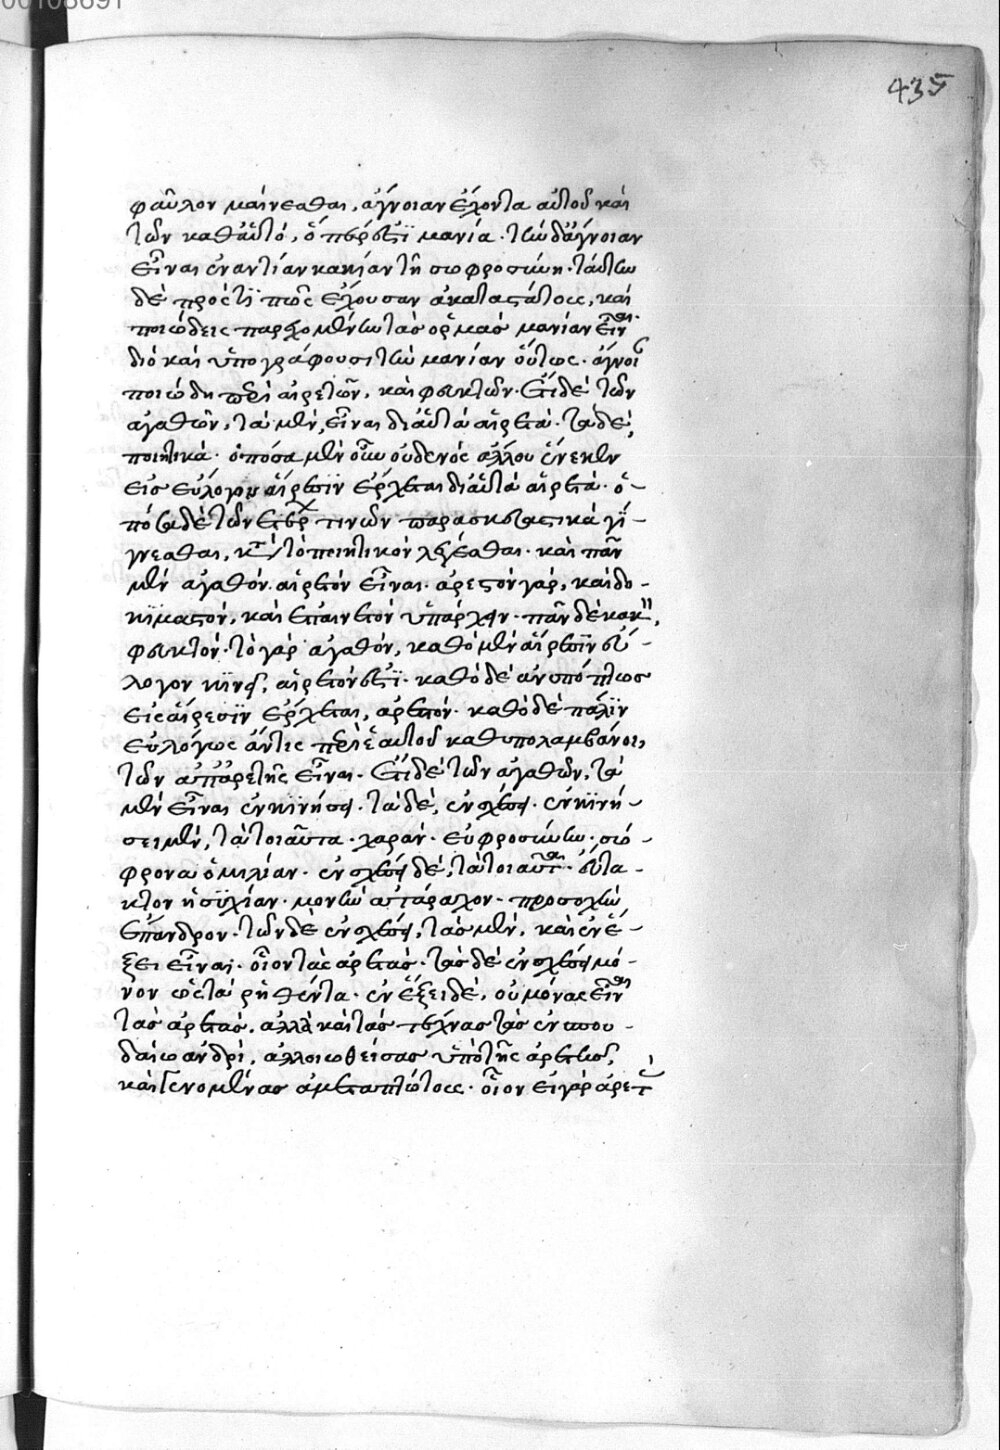 00108691
435
φαῦλον μαίνεσθαι, ἄγνοιαν ἔχοντα αὐτοῦ καὶ
τῶν καθ' αὑτό, ὅπερ ἐστὶ μανία. τὴν δ' ἄγνοιαν
εἶναι ἐναντίαν κακίαν τῇ σωφροσύνῃ. ταύτην
δὲ πρός τί πως ἔχουσαν ἀκαταστάτους, καὶ
ποιώδεις παρεχομένην τὰς ὁρμὰς μανίαν εἶναι.
διὸ καὶ ὑπογράφουσι τὴν μανίαν οὕτως. ἄγνοι
ποιώδη περὶ αἱρετῶν, καὶ φευκτῶν. ἔτι δὲ τῶν
ἀγαθῶν, τὰ μὲν, εἶναι δι' αὑτὰ αἱρετά. τὰ δὲ,
ποιητικά. ὁπόσα μὲν οὖν οὐδενὸς ἄλλου ἕνεκεν
εἰς εὔλογον αἵρεσιν ἔρχεται δι' αὑτὰ αἱρετά. ὁ-
πόσα δὲ τῶν ἑτέρ τινῶν παρασκευαστικὰ γί-
γνεσθαι, κτ τὸ ποιητικὸν λέγεσθαι. καὶ πᾶν
μὲν ἀγαθὸν. αἱρετὸν εἶναι. ἀρεστὸν γὰρ, καὶ δο-
κιμαστὸν, καὶ ἐπαινετὸν ὑπάρχειν. πᾶν δὲ κακ,
φευκτόν. τὸ γὰρ ἀγαθὸν, καθὸ μὲν αἵρεσιν εὔ-
λογον κινεῖ, αἱρετὸν ἐστί. καθὸ δὲ ἀνυπόπτως
εἰς αἵρεσιν ἔρχεται, ἀρεστόν. καθὸ δὲ πάλιν
εὐλόγως ἄν τις περὶ ἑαυτοῦ καθυπολαμβάνοι,
τῶν ἀπ' ἀρετῆς εἶναι. ἔτι δὲ τῶν ἀγαθῶν, τὰ
μὲν εἶναι ἐν κινήσει. τὰ δὲ, ἐν σχέσει. ἐν κινή-
σει μὲν, τὰ τοιαῦτα. χαρὰν. εὐφροσύνην. σώ-
φρονα ὁμιλίαν. ἐν σχέσει δὲ, τὰ τοιαῦτα. εὔτα-
κτον ἡσυχίαν. μονὴν ἀτάραχον. προσοχὴν
ἔπανδρον. τῶν δὲ ἐν σχέσει, τὰς μὲν, καὶ ἐν ἕ-
ξει εἶναι. οἷον τὰς ἀρετάς. τὰς δὲ ἐν σχέσει μό-
νον ὡς τὰ ῥηθέντα. ἐν ἕξει δὲ, οὐ μόνας εἶναι
τὰς ἀρετὰς. ἀλλὰ καὶ τὰς τέχνας τὰς ἐν σπου-
δαίω ἀνδρὶ, ἀλλοιωθείσας ὑπὸ τῆς ἀρετῆς,
καὶ γενομένας ἀμεταπτώτους. οἷον εἰ γὰρ ἀρετ